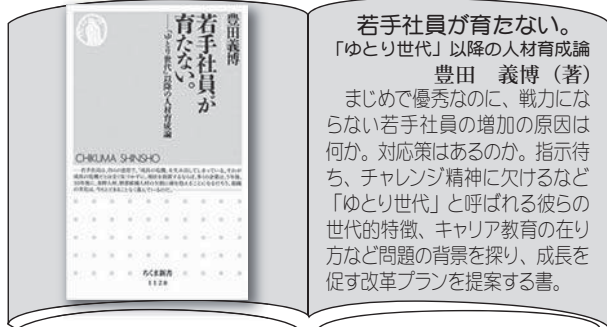 豊田義博
若手社員が
育たない。
──「ゆとり世代」以降の人材育成論
CHIKUMA SHINSHO
ちくま新書
1128
若手社員が育たない。
「ゆとり世代」以降の人材育成論
豊田　義博（著）
まじめで優秀なのに、戦力にな
らない若手社員の増加の原因は
何か。対応策はあるのか。指示待
ち、チャレンジ精神に欠けるなど
「ゆとり世代」と呼ばれる彼らの
世代的特徴、キャリア教育の在り
方など問題の背景を探り、成長を
促す改革プランを提案する書。